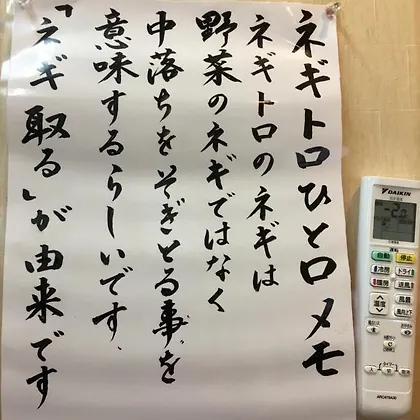 ネギトロひと口メモ
ネギトロのネギは
野菜のネギではなく
中落ちをそぎとる事を
意味するらしいです、
「ネギ取る」が由来です
DAIKIN
自動
停止
冷房
ドライ
暖房
送風
温度
風量
風向上下